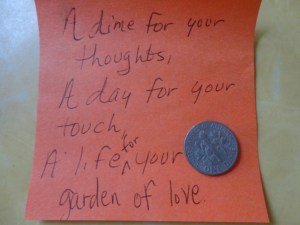 A dime for your
thoughts,
A day for your
touch,
A life for your
garden of love.